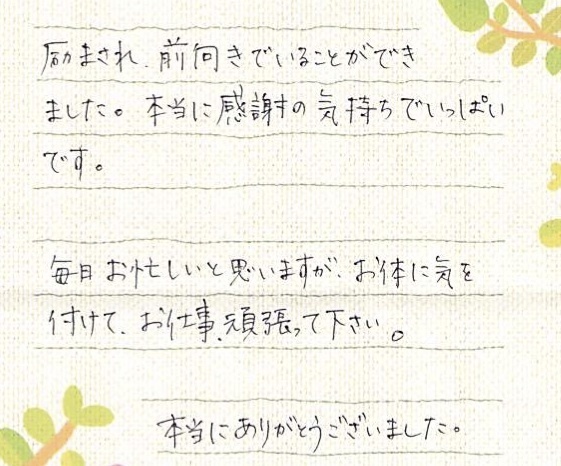 励まされ、前向きでいることができ
ました。本当に感謝の気持ちでいっぱい
です。
毎日お忙しいと思いますが、お体に気を
付けて、お仕事、頑張って下さい。
本当にありがとうございました。